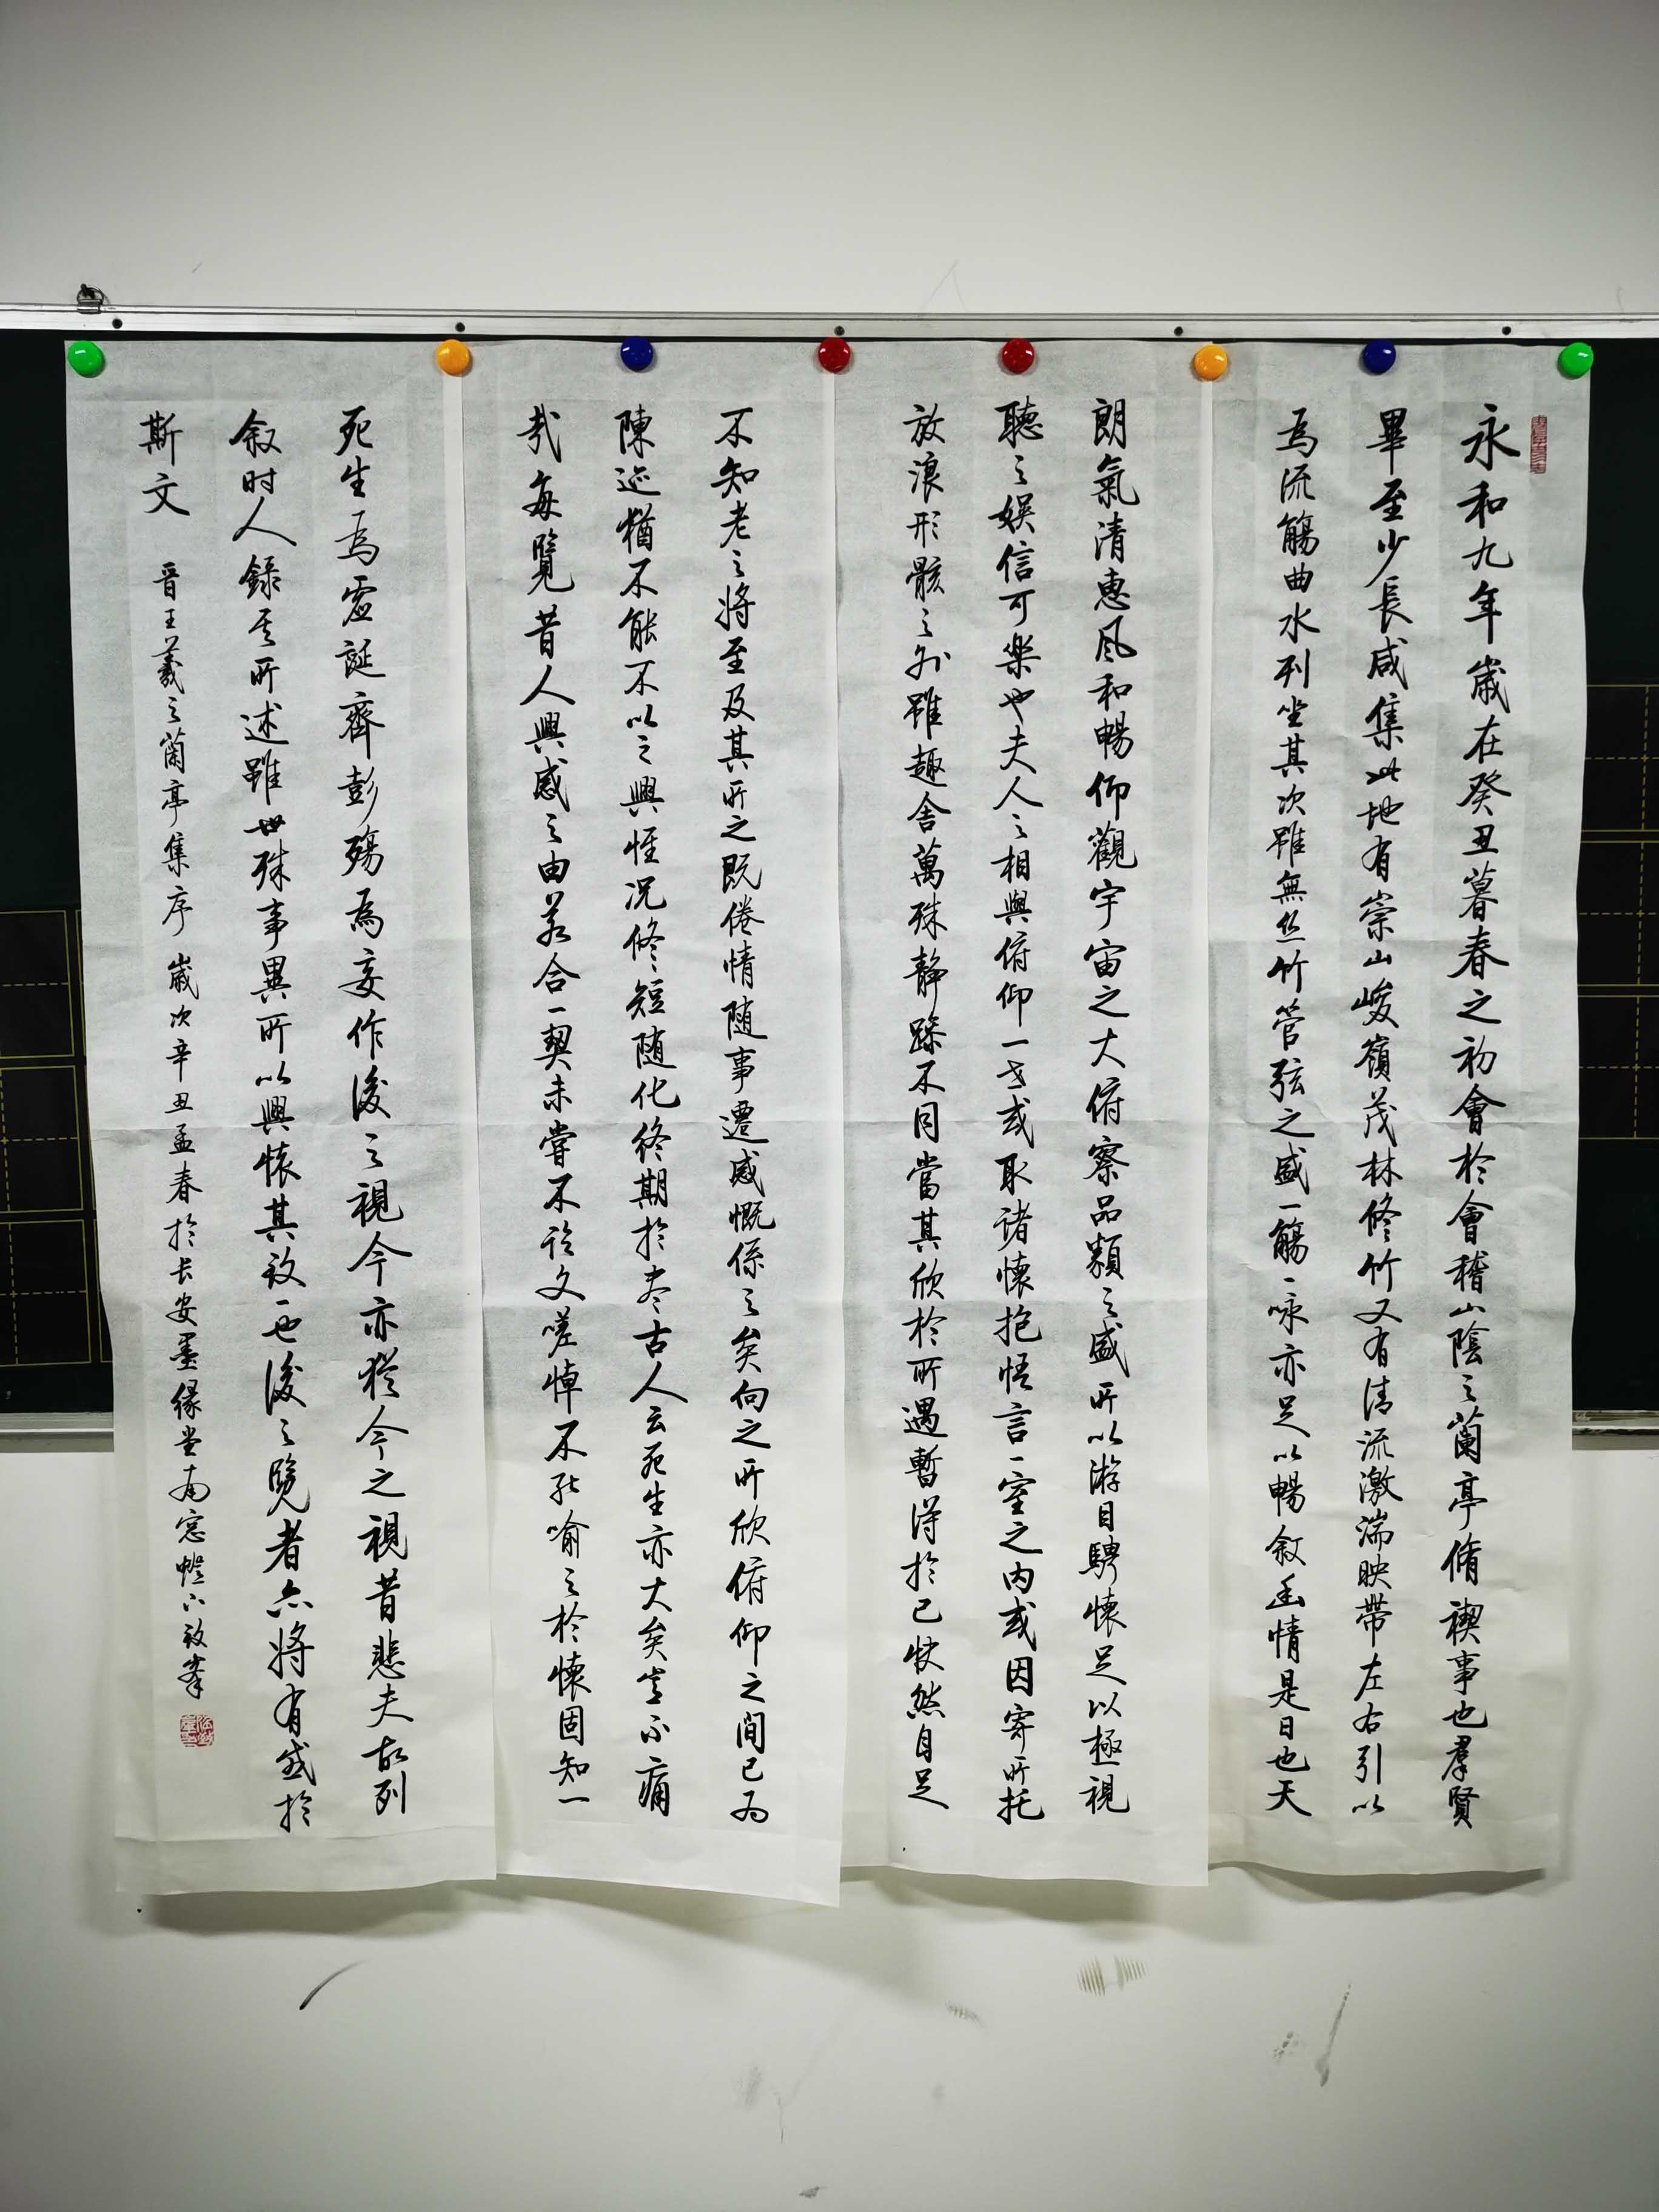 永和九年歲在癸丑暮春之初會於會稽山陰之蘭亭脩禊事也羣賢
畢至少長咸集此地有崇山峻嶺茂林修竹又有清流激湍映帶左右引以
為流觴曲水列坐其次雖無丝竹管弦之盛一觴一咏亦足以暢敘幽情是日也天
朗氣清惠风和暢仰觀宇宙之大俯察品類之盛所以游目騁懷足以極視
聽之娛信可樂也夫人之相與俯仰一世或取诸懷抱悟言一室之内或因寄所托
放浪形骸之外雖趣舍萬殊静躁不同當其欣於所遇暫得於己快然自足
不知老之將至及其所之既倦情随事遷感慨係之矣向之所欣俯仰之間已为
陳迹猶不能不以之興懷况修短随化終期於尽古人云死生亦大矣豈不痛
哉每覽昔人興感之由若合一契未嘗不臨文嗟悼不能喻之於懷固知一
死生為虛誕齊彭殤為妄作後之視今亦猶今之視昔悲夫故列
叙时人録其所述雖世殊事異所以興懷其致一也後之覽者亦將有感於
斯文 晉王羲之蘭亭集序 歲次辛丑孟春於长安墨缘堂南窓燈下